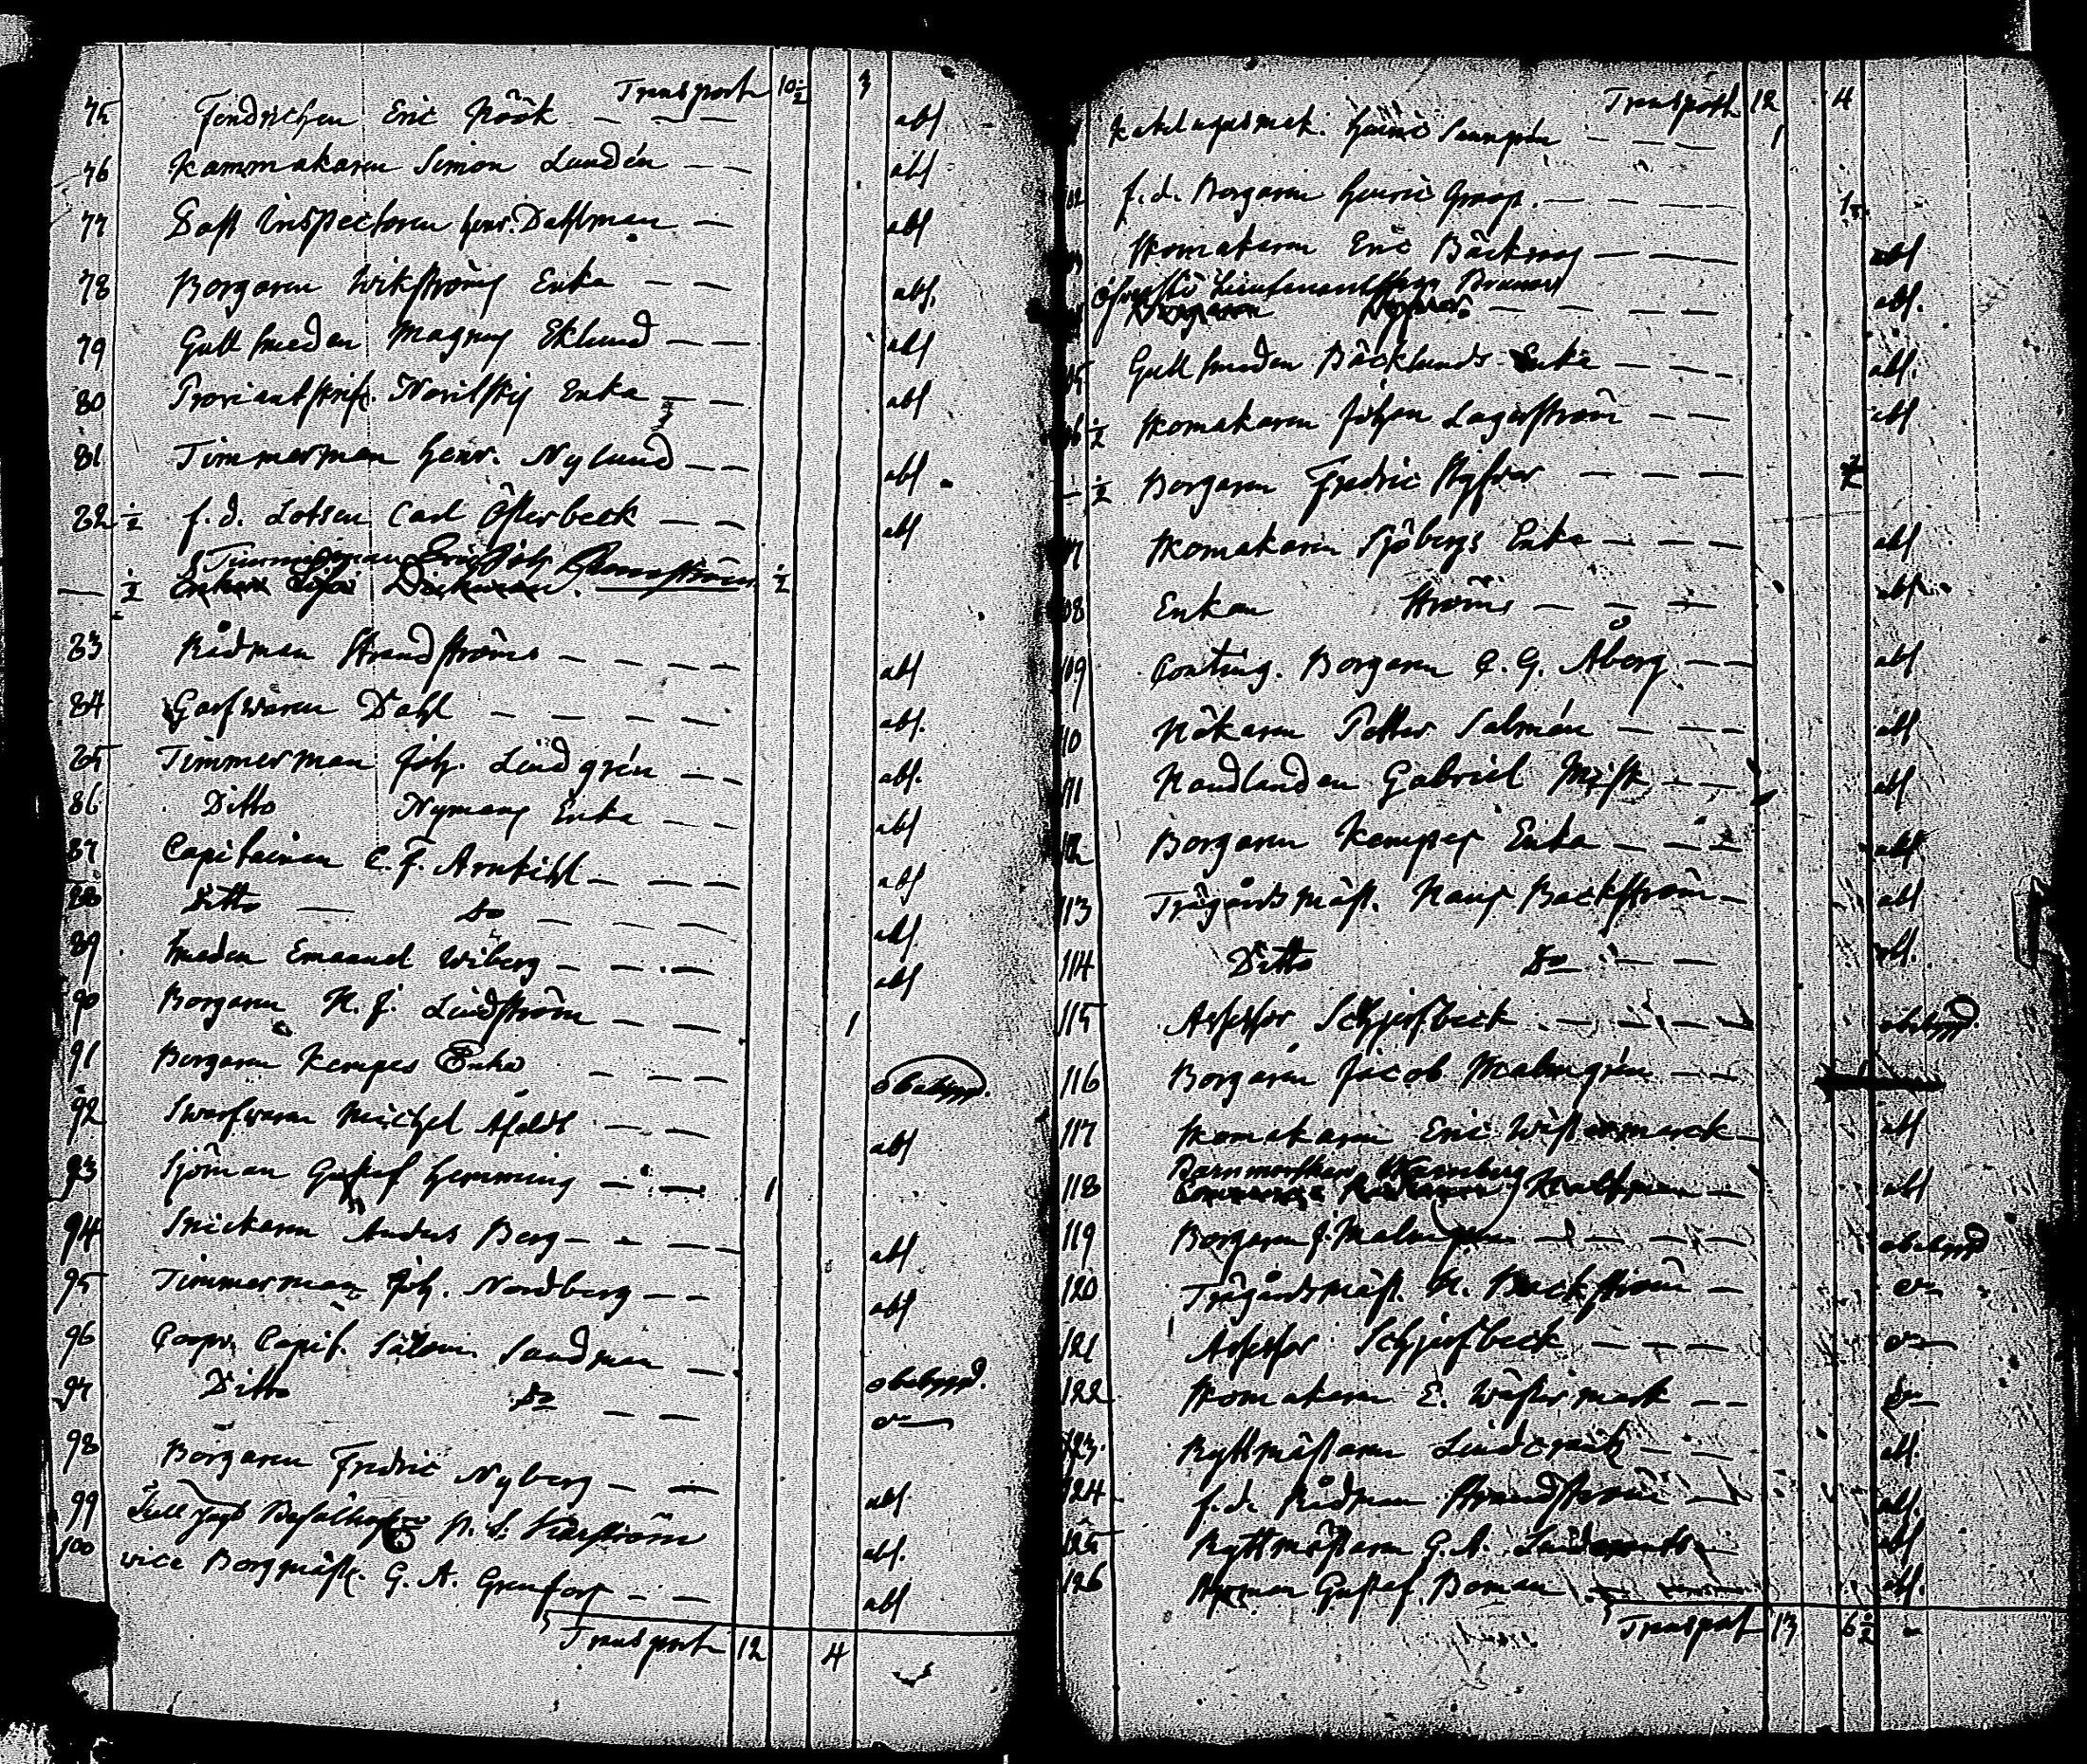 Transport 10½ 3
75 Fendrichen Eric Röök — — — abs
76 Kammakaren Simon Lundén — — abs
77 Inspectoren Henr. Dahlman — abs
78 Borgaren Wikströms Enka — — abs.
79 Gullsmeden Magnus Eklund — — abs
80 Proviantskrif. Enka — — abs
81 Timmerman Henr. Nylund — — abs
82 ½ f.d. Lotsen Carl Österbeck — — abs
Timmerman Eric Joh
— ½ Enkan ½
83 Rådman Strandström — — — — abs
84 Garfwaren Dahl — — — — abs.
85 Timmerman Joh. Lindgrén — — abs.
86 Ditto Nymans Enka — — abs
87 Capitainen C. F. Arnkihl — — — abs
88 Ditto — Do — — — — abs
89 Smeden Emanuel Wiberg — — — abs
90 Borgaren H. J. Lindström — — — 1
91 Borgaren Kempes Enka — — — obebygd.
92 Swarfwaren Michel — — — abs
93 Sjöman Gustaf Hemming — — 1
94 Snickaren Anders Berg — — — — abs
95 Timmerman Joh. Nordberg — — abs
96 Coop. Capit. Salom. Sandman — obebygd.
97 Ditto Do — — do
98 Borgaren Fredric Nyberg — — abs
99 Tull Jagt abs.
100 vice Borgmäst. G. A. — — abs
Transport 12 4
Transport 12 4
Henric — — — 1
102 f.d. Borgaren Henric Groop. — — — — 1
Skomakaren Eric Bäckman — — — — abs
Öfverste Lieutenantskan
— — — — abs.
105 Gullsmeden Bäcklunds Enka — — — abs.
106 ½ Skomakaren Johan Lagerström — — abs
— ½ Borgaren Fredric — — — ½
107 Skomakaren Sjöbergs Enka — — — abs
108 Enkan Ström — — — abs.
109 Conting. Borgaren C. G. Åberg — — abs
110 Åkaren Petter Salmén — — — abs
111 Handlanden Gabriel — — abs
112 Borgaren Kempes Enka — — — abs
113 Trägårdsmäst. Hans Backström — abs
114 Ditto Do — — abs.
115 Assessor Schjerfbeck — — — — obebygd.
116 Borgaren Jacob Malmgrén — —
117 Skomakaren Eric Westermarck — abs
118 — abs
119 Borgaren J. Malmgrén — — — — obebygd
120 Trägårdsmäst. H. Backström — do
121 Assessor Schjerfbeck — — — do
122 Skomakaren E. Westermark — — do
123. Ryttmästaren Lindcrantz — — abs.
124 f.d. Rådman Strandström — abs.
125 Ryttmästaren G. A. Lindcrantz — abs
126 Gustaf Boman — — abs.
Transport 13 6½